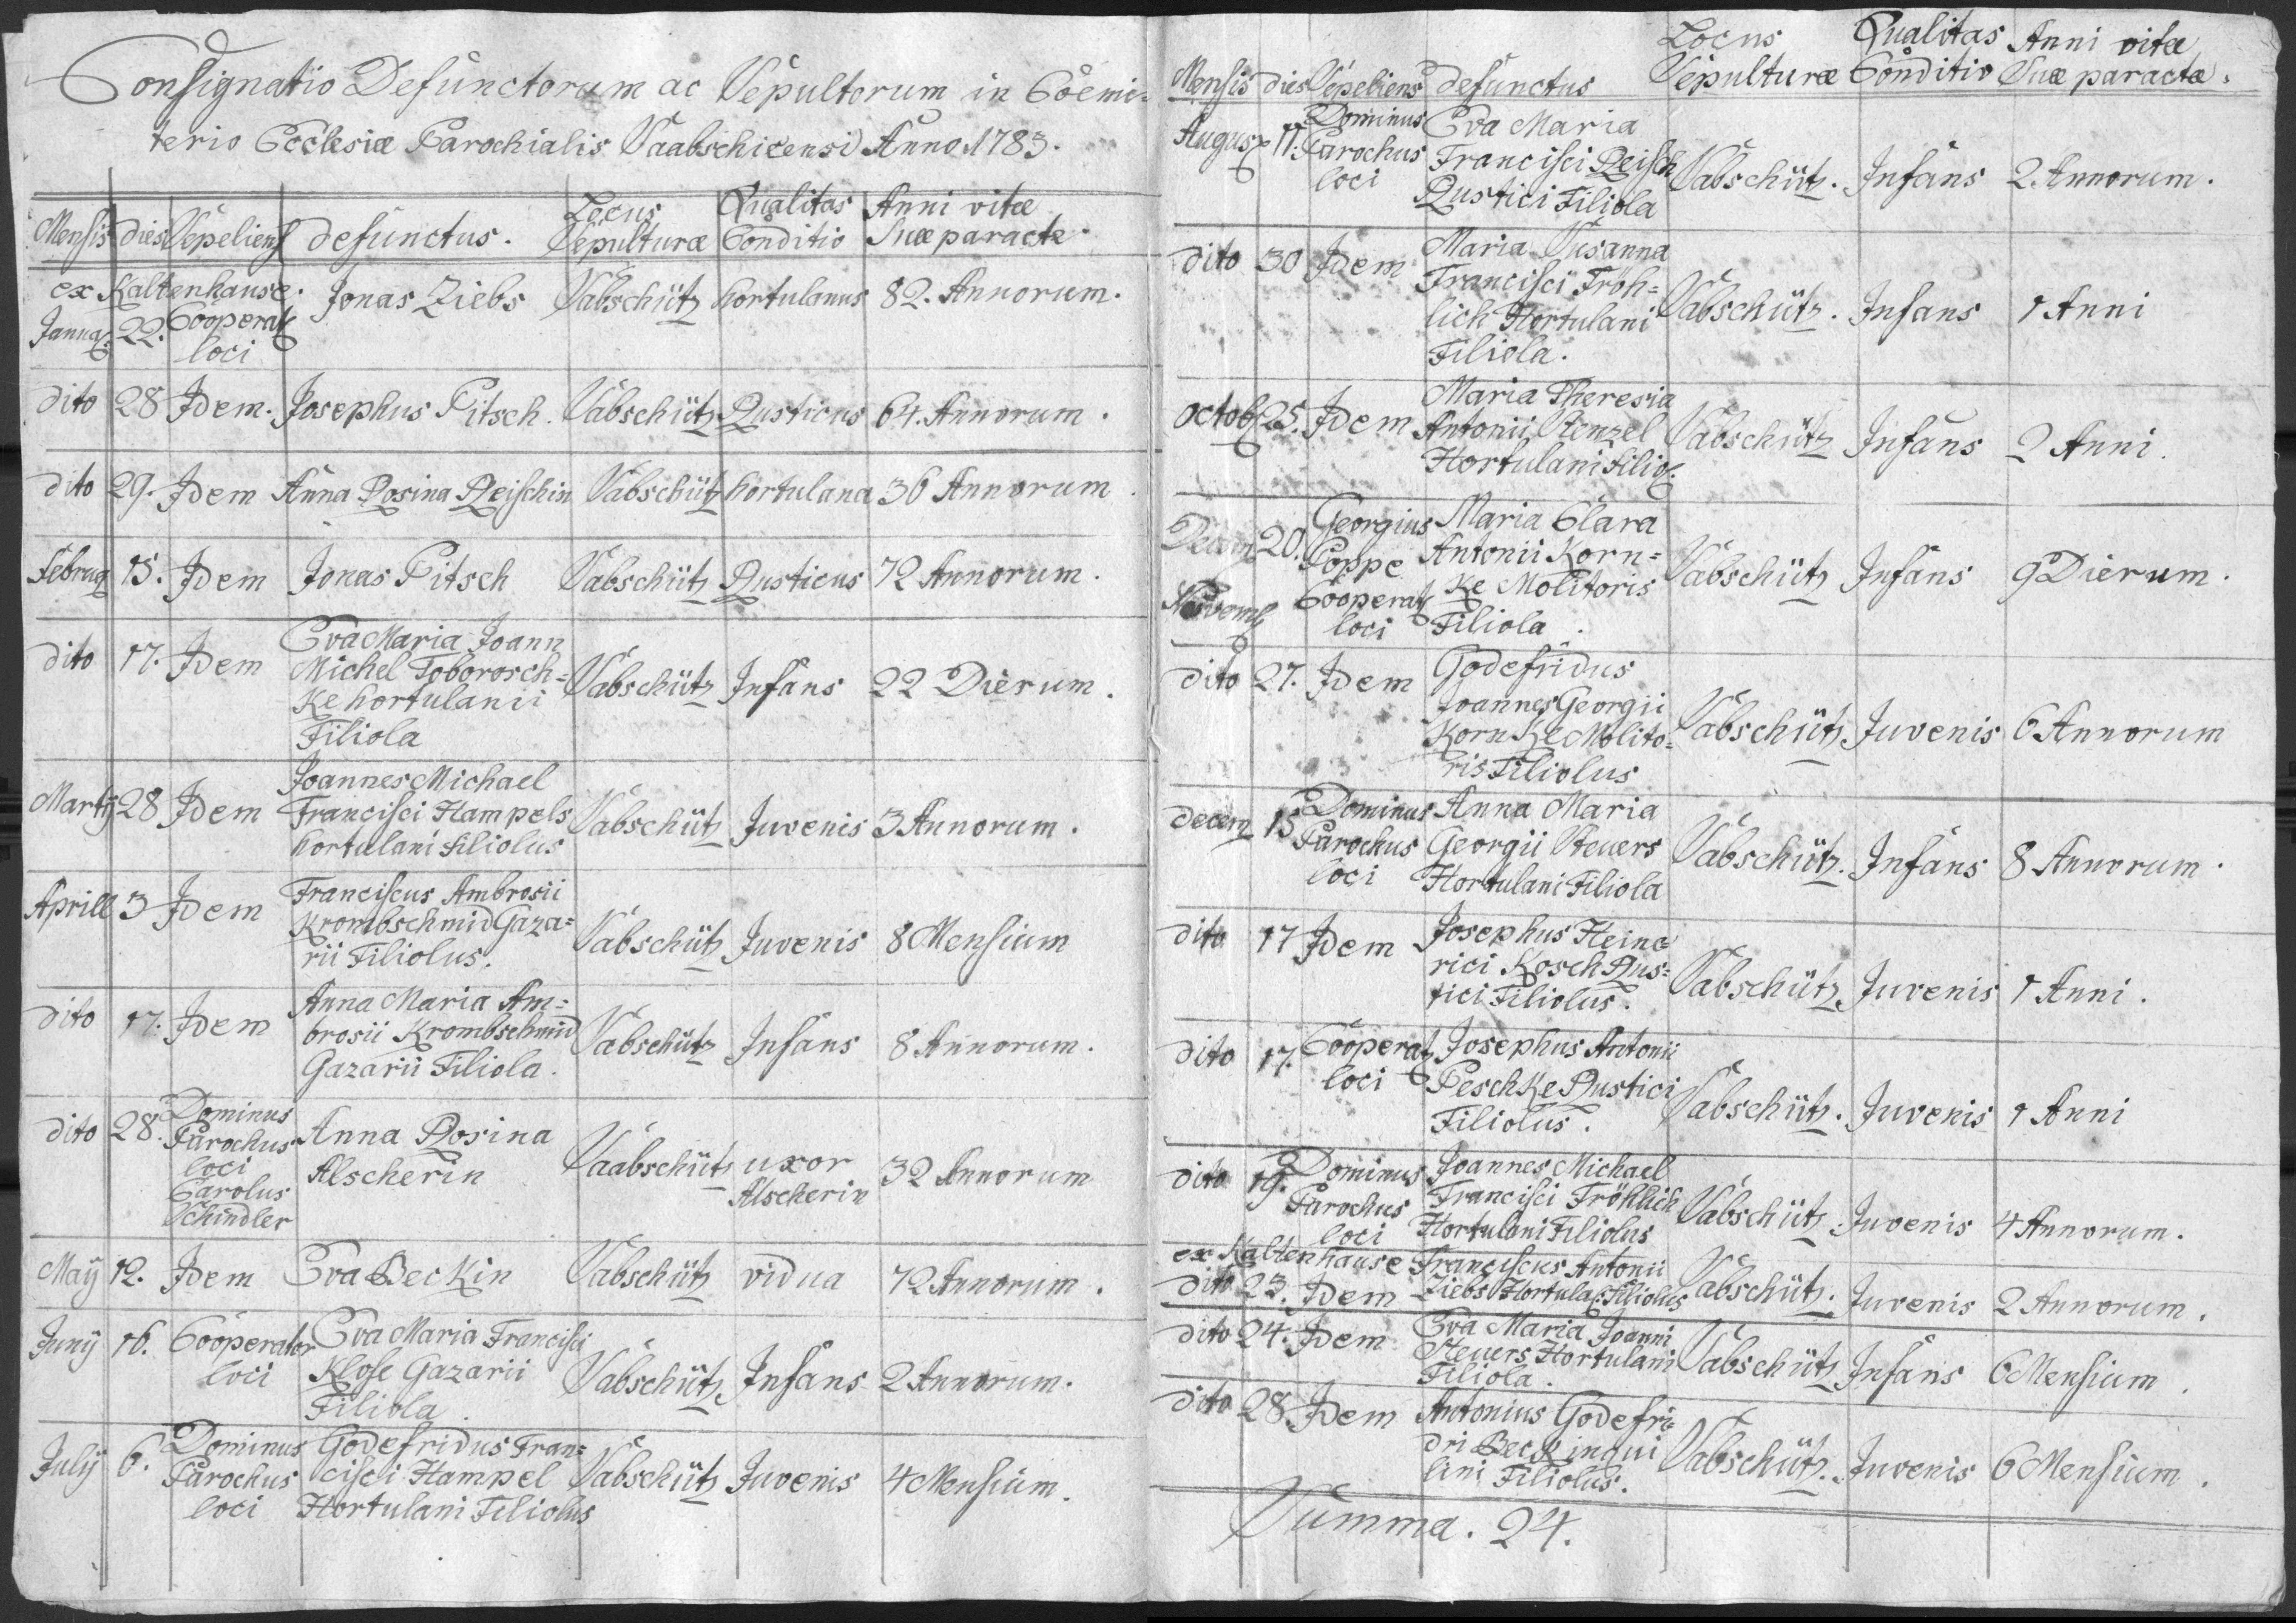 Consignatio Defunctorum ac Sepultorum in Coemi=
terio Ecclesiæ Parochialis Saabschicensi Anno 1783.
Mensis dies Sepeliens defunctus. Locus Sepulturæ Qualitas Conditio Anni vitæ Suæ paractæ
ex Kaltenhause.
Januar. 22. Cooperat. loci Jonas Ziebs Sabschütz hortulanus 82. Annorum.
dito 28 Idem. Josephus Pitsch. Sabschütz Rusticus 64. Annorum.
dito 29. Idem Anna Rosina Reischin Sabschütz hortulana 36 Annorum.
Februar. 15. Idem Jonas Pitsch Sabschütz Rusticus 72 Annorum.
dito 17. Idem Eva Maria Joann
Michel Toborosch=
ke hortulanii
Filiola Sabschütz Infans 22 Dierum.
Martij 28 Idem Joannes Michael
Francisci Hampels
hortulani Filiolus Sabschütz Juvenis 3 Annorum.
Aprill 3 Idem Franciscus Ambrosii
Krombschmid Gaza=
rii Filiolus. Sabschütz Juvenis 8 Mensium
dito 17. Idem Anna Maria Am=
brosii Krombschmid
Gazarii Filiola. Sabschütz Infans 8 Annorum.
dito 28. Dominus
Parochus
loci
Carolus
Schindler Anna Rosina
Alscherin Saabschütz uxor
Alscherin 32 Annorum
Maij 12. Idem Eva Beckin Sabschütz vidua 72 Annorum.
Junij 16. Cooperator
loci Eva Maria Francisci
Klose Gazarii
Filiola. Sabschütz Infans 2 Annorum.
Julij 6. Dominus
Parochus
loci Godefridus Fran=
cisci Hampel
Hortulani Filiolus Sabschütz Juvenis 4 Mensium.
Mensis dies Sepeliens defunctus Locus Sepulturæ Qualitas Conditio Anni vitæ Suæ paractæ.
August. 11. Dominus
Parochus
loci Eva Maria
Francisci Reisch
Rustici Filiola Sabschütz. Infans 2. Annorum.
dito 30 Idem Maria Susanna
Francisci Fröh=
lich Hortulani
Filiola. Sabschütz. Infans 1 Anni
Octob. 25. Idem Maria Theresia
Antonii Stenzel
Hortulani Filiol. Sabschütz Infans 2 Anni.
Decem
Novemb. 20. Georgius
Poppe
Cooperat.
loci Maria Clara
Antonii Korn=
ke Molitoris
Filiola. Sabschütz Infans 9 Dierum.
dito 27. Idem Godefridus
Joannes Georgii
Kornke Molito=
ris Filiolus Sabschütz Juvenis 6 Annorum
Decem 15 Dominus
Parochus
loci Anna Maria
Georgii Steuers
Hortulani Filiola Sabschütz. Infans 8 Annorum.
dito 17 Idem Josephus Hein=
rici Kosch Rus=
tici Filiolus. Sabschütz Juvenis 1 Anni.
dito 17. Cooperat.
loci Josephus Antonii
Peschke Rustici
Filiolus. Sabschütz. Juvenis 1 Anni
dito 19. Dominus
Parochus
loci Joannes Michael
Francisci Fröhlich
Hortulani Filiolus Sabschütz. Juvenis 4 Annorum.
ex Kaltenhause
dito 23. Idem Franciscus Antonii
Ziebs Hortula. Filiolus Sabschütz. Juvenis 2 Annorum.
dito 24. Idem Eva Maria Joanni
Steuers Hortulani
Filiola. Sabschütz Infans 6 Mensium.
dito 28 Idem Antonius Godefri=
dri Beck inqui
lini Filiolus. Sabschütz. Juvenis 6 Mensium.
Summa. 24.